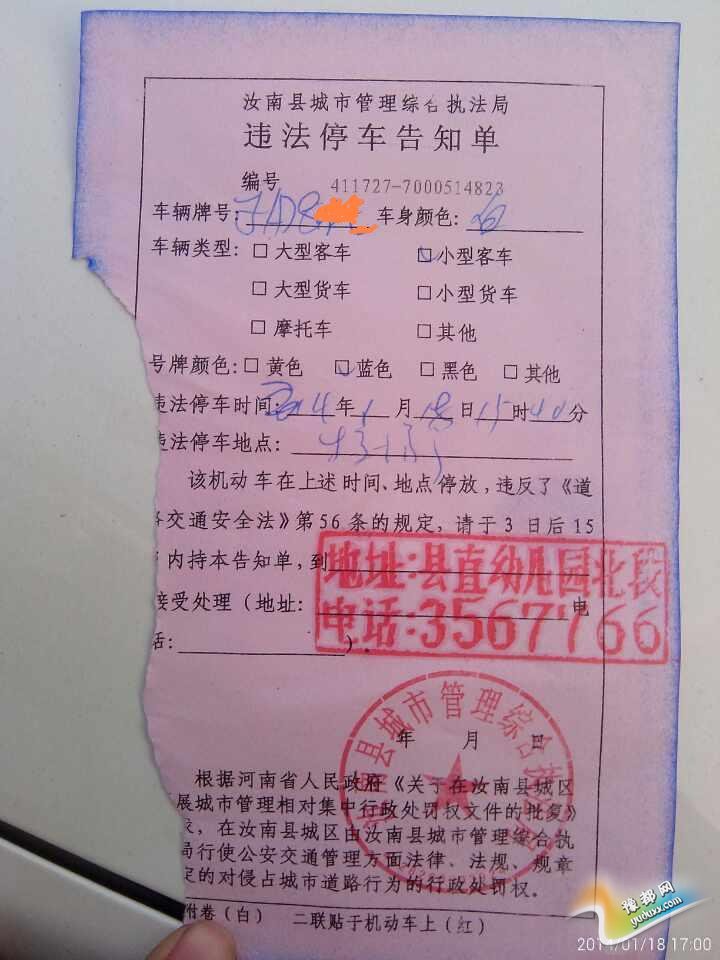 汝南县城市管理综合执法局
违法停车告知单
编号 411727-7000514823
车辆牌号: 车身颜色: 白
车辆类型: □大型客车 ☑小型客车
□大型货车 □小型货车
□摩托车 □其他
号牌颜色: □黄色 ☑蓝色 □黑色 □其他
违法停车时间: 2014年1月18日15时40分
违法停车地点:
该机动车在上述时间、地点停放,违反了《道
路交通安全法》第56条的规定,请于3日后15
内持本告知单,到
地址:县直幼儿园北段
接受处理(地址: 电
电话:3567766
话: ).
年 月 日
汝南县城市管理综合执法局
根据河南省人民政府《关于在汝南县城区
展城市管理相对集中行政处罚权文件的批复》
,在汝南县城区由汝南县城市管理综合执
局行使公安交通管理方面法律、法规、规章
定的对侵占城市道路行为的行政处罚权。
附卷(白) 二联贴于机动车上(红)
豫都网
yuduxx.com
2014/01/18 17:00